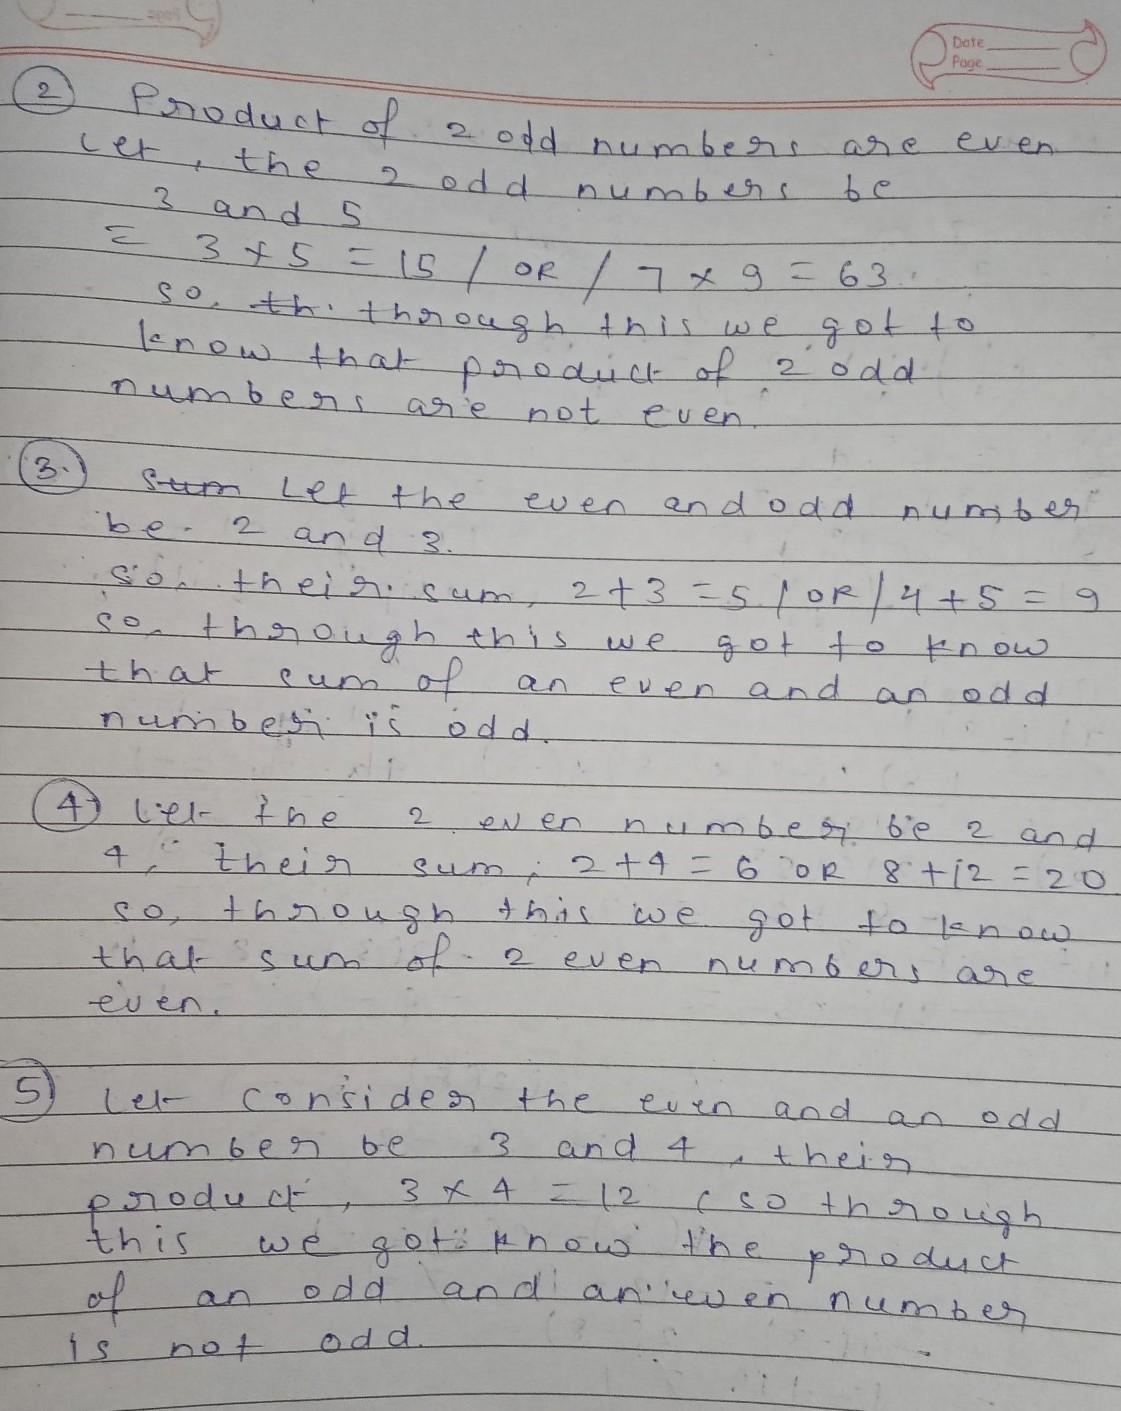 Date
Page
2 Product of 2 odd numbers are even
Let, the 2 odd numbers be
3 and 5
= 3 × 5 = 15 / OR / 7 × 9 = 63.
so, th. through this we got to
know that product of 2 odd
numbers are not even.
3. Sum Let the even and odd number
be. 2 and 3.
so, their sum, 2+3 = 5 / OR / 4+5 = 9
so, through this we got to know
that sum of an even and an odd
number is odd.
4) Let the 2 even number be 2 and
4, their sum, 2+4 = 6 OR 8+12 = 20
so, through this we got to know
that sum of 2 even numbers are
even.
5) Let consider the even and an odd
number be 3 and 4, their
product, 3 × 4 = 12 ( so through
this we got know the product
of an odd and an even number
is not odd.